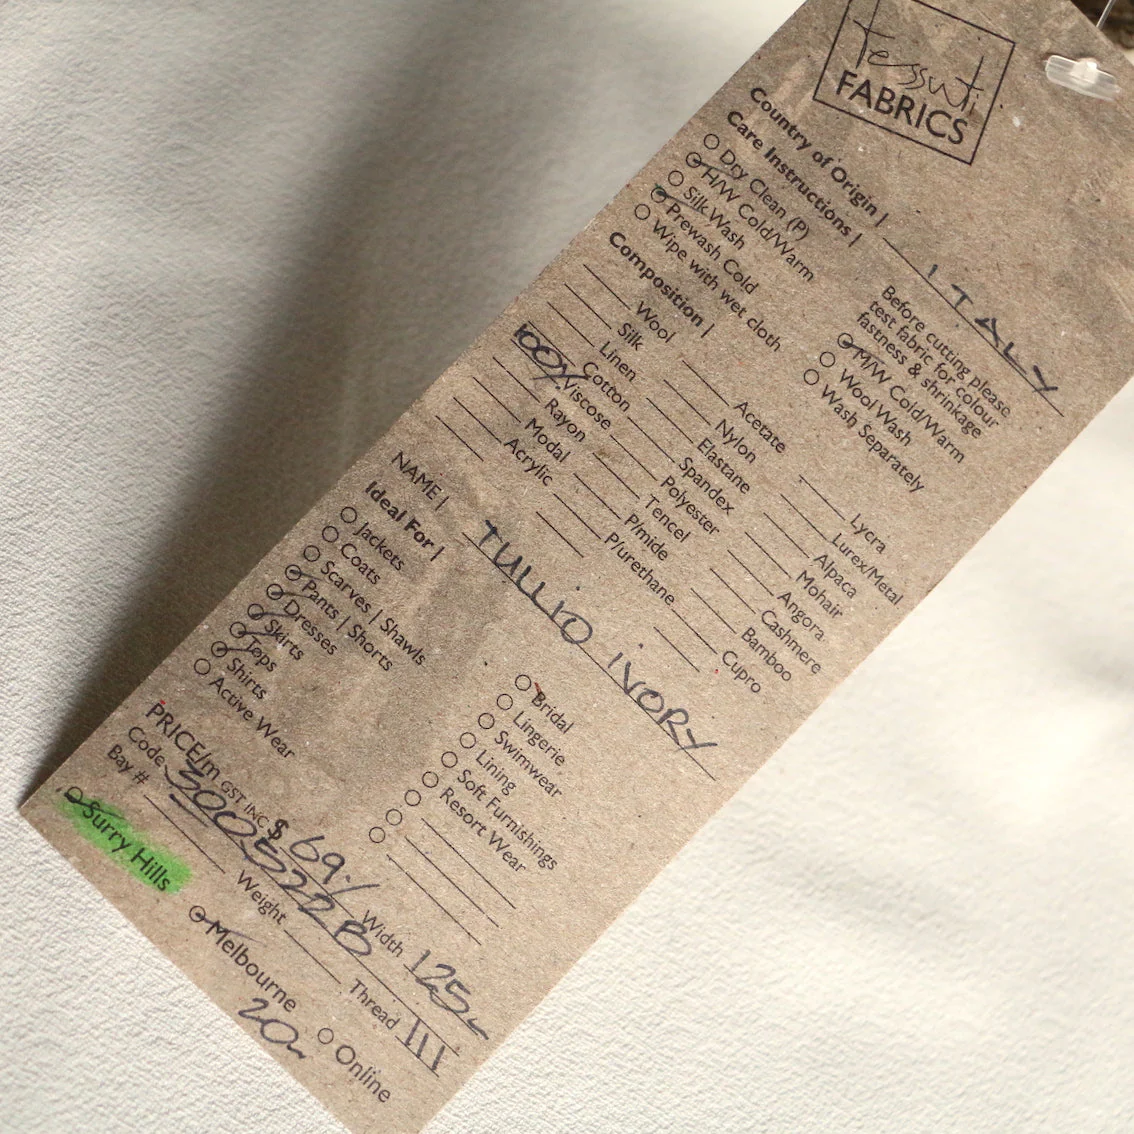 tessuti
FABRICS
Country of Origin | ITALY
Care Instructions |
Dry Clean (P)
H/W Cold/Warm
Silk Wash
Prewash Cold
Wipe with wet cloth
Before cutting please
test fabric for colour
fastness & shrinkage
M/W Cold/Warm
Wool Wash
Wash Separately
Composition |
Wool
Silk
Linen
Cotton
100% Viscose
Rayon
Modal
Acrylic
Acetate
Nylon
Elastane
Spandex
Polyester
Tencel
P/mide
P/urethane
Lycra
Lurex/Metal
Alpaca
Mohair
Angora
Cashmere
Bamboo
Cupro
NAME | TULLIO IVORY
Ideal For |
Jackets
Coats
Scarves | Shawls
Pants | Shorts
Dresses
Skirts
Tops
Shirts
Active Wear
Bridal
Lingerie
Swimwear
Lining
Soft Furnishings
Resort Wear
PRICE/m GST INC $ 69./ Width 125
Code 300522B Thread III
Bay # Weight
Surry Hills
Melbourne
20
Online